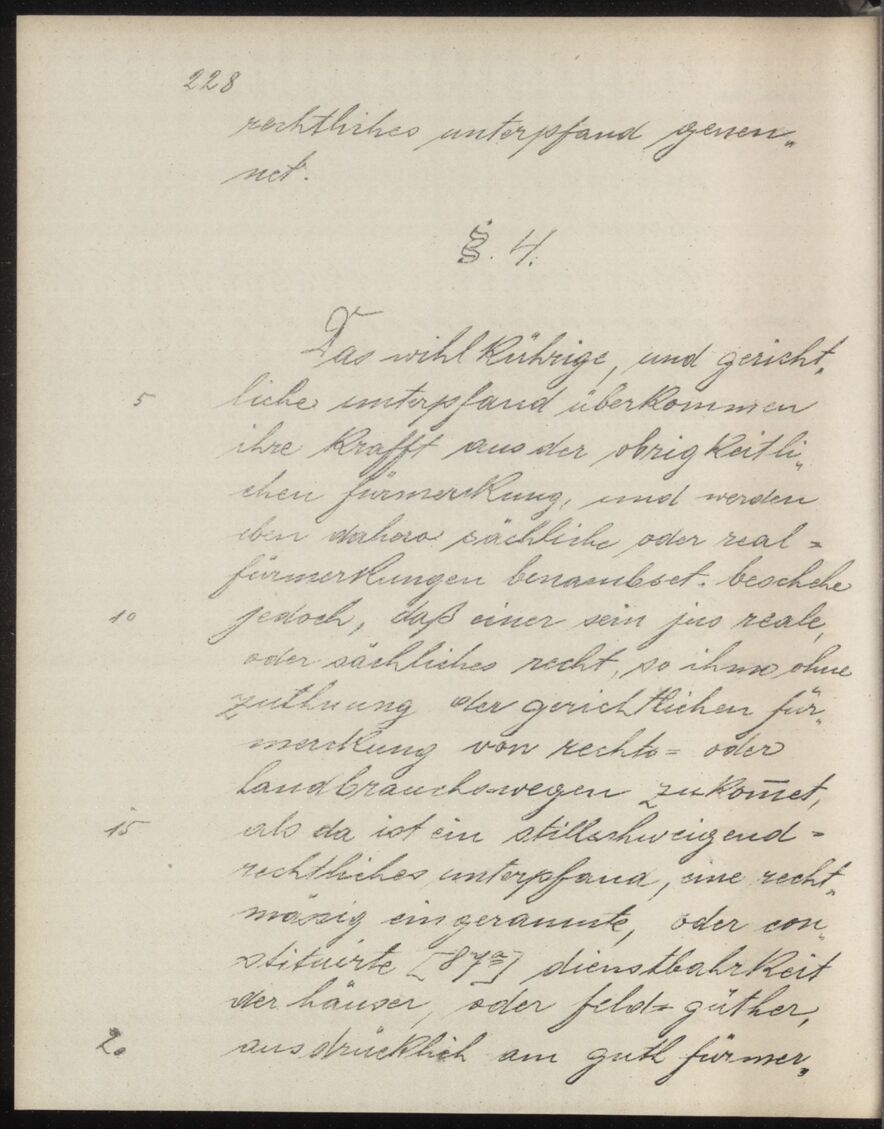 228
rechtliches unterpfand genen„
net.
§. 4.
Das wihlkührige, und gericht„
5 liche unterpfand überkommen
ihre krafft aus der obrigkeitli„
chen fürmerkung, und werden
eben dahero sächliche oder real=
fürmerkungen benambset. beschehe
10 jedoch, daß einer sein jus reale,
oder sächliches recht, so ihme ohne
zuthuung der gerichtlichen für„
merckung von rechts= oder
landbrauchswegen zukom̅et,
15 als da ist ein stillschweigend=
rechtliches unterpfand, eine recht„
mässig eingeraumte, oder con„
stituirte [87a] dienstbahrkeit
der häuser, oder feld=güther,
20 ausdrücklich am guth fürmer„